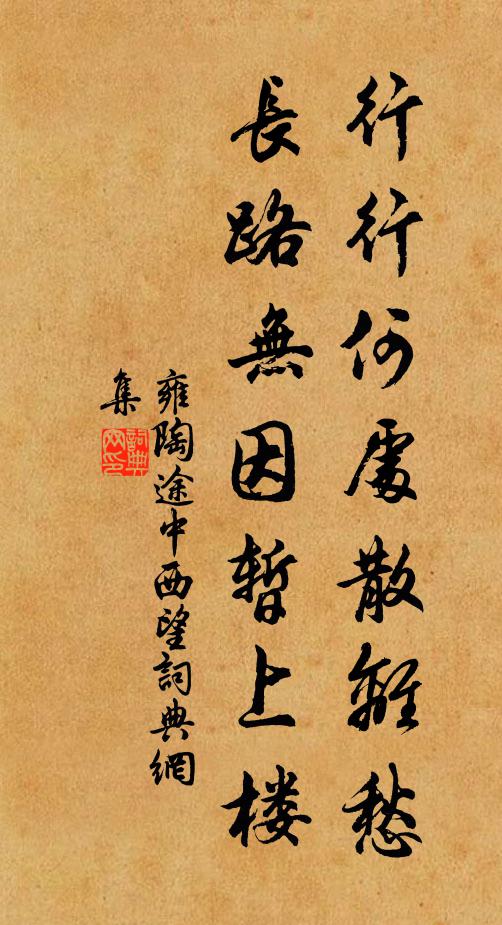 行行何處散離愁
長路無因暫上楼
雍陶途中西望詞典網
集
詞典网印